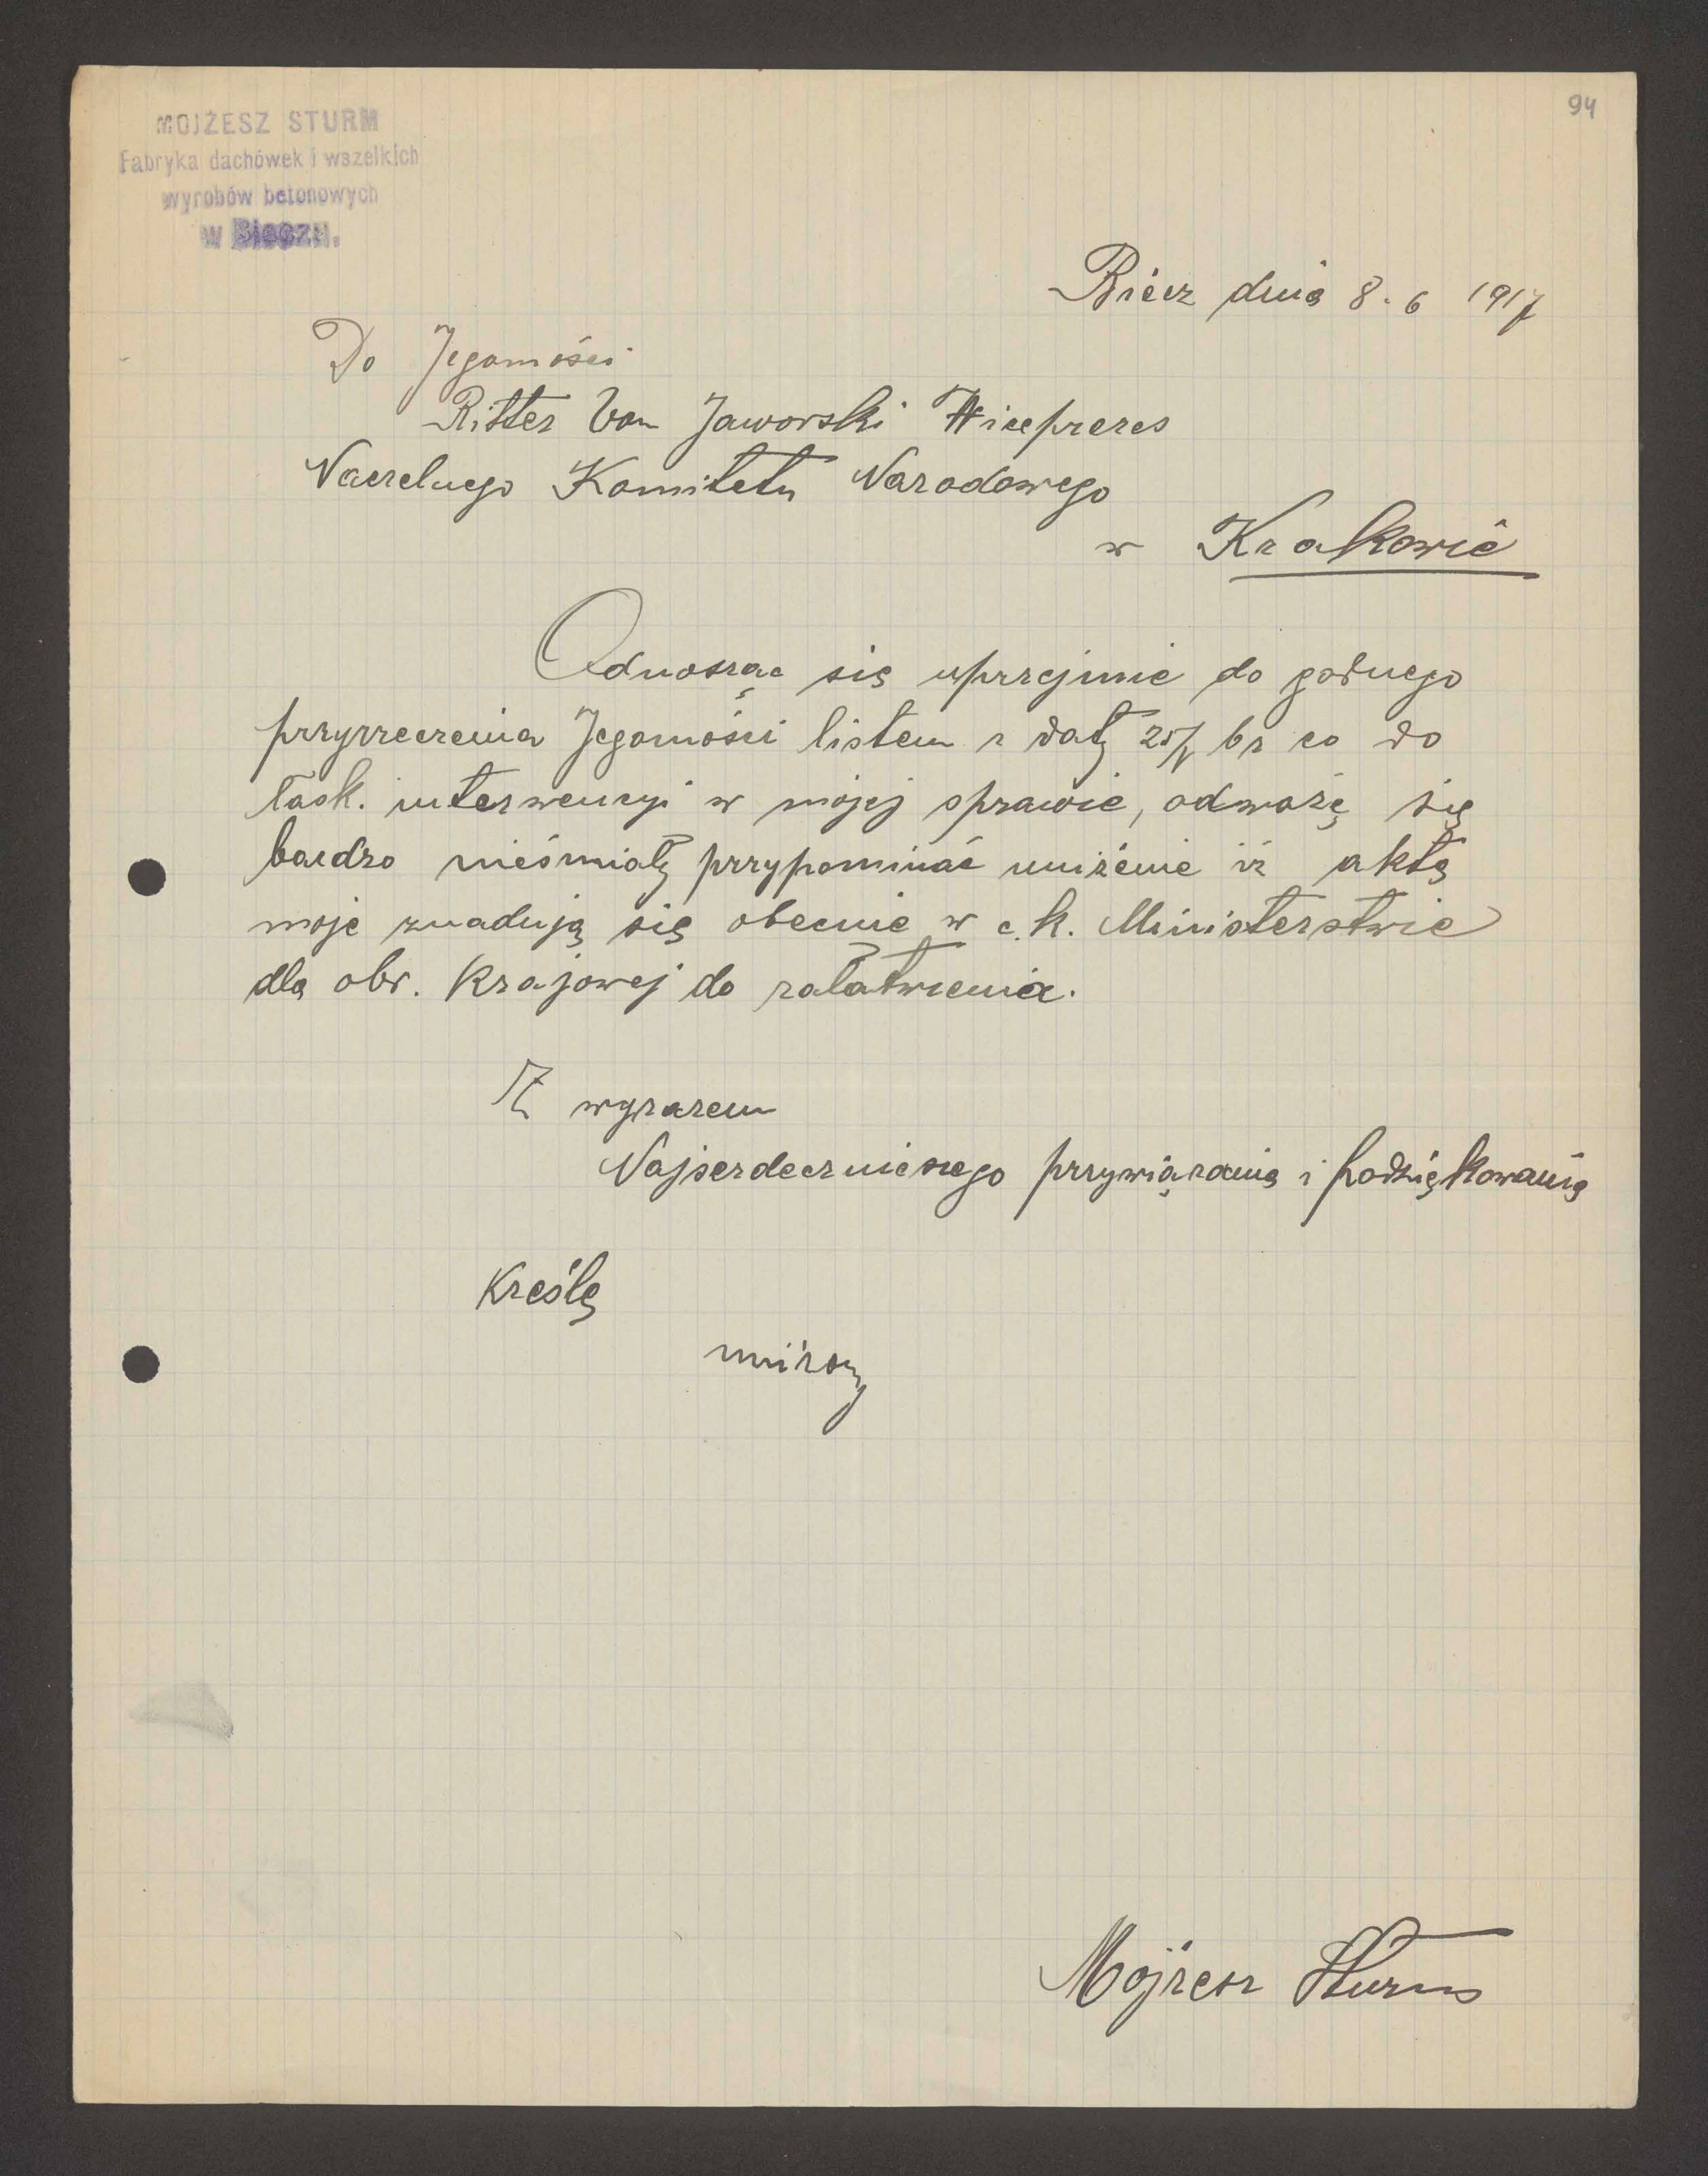 94
MOJŻESZ STURM
Fabryka dachówek i wszelkich
wyrobów betonowych
w Bieczu.
Biécz dnia 8.6 1917
Do Jegomości
Ritter Von Jaworski Wiceprezes
Naczelnego Komitetu Narodowego
w Krakowie
Odnosząc się uprzejmie do godnego
przyrzeczenia Jegomości listem z datą 25/V br co do
łask. interwencyi w mojej sprawie, odważę się
bardzo nieśmiałą przypominać uniżenie iż akta
moje znadują się obecnie w c.k. Ministerstwie
dla obr. Krajowej do załatwienia.
Z wyrazem
Najserdecznieszego przywiązania i podziękowania
Kreślę
uniżony
Mojżesz Sturm